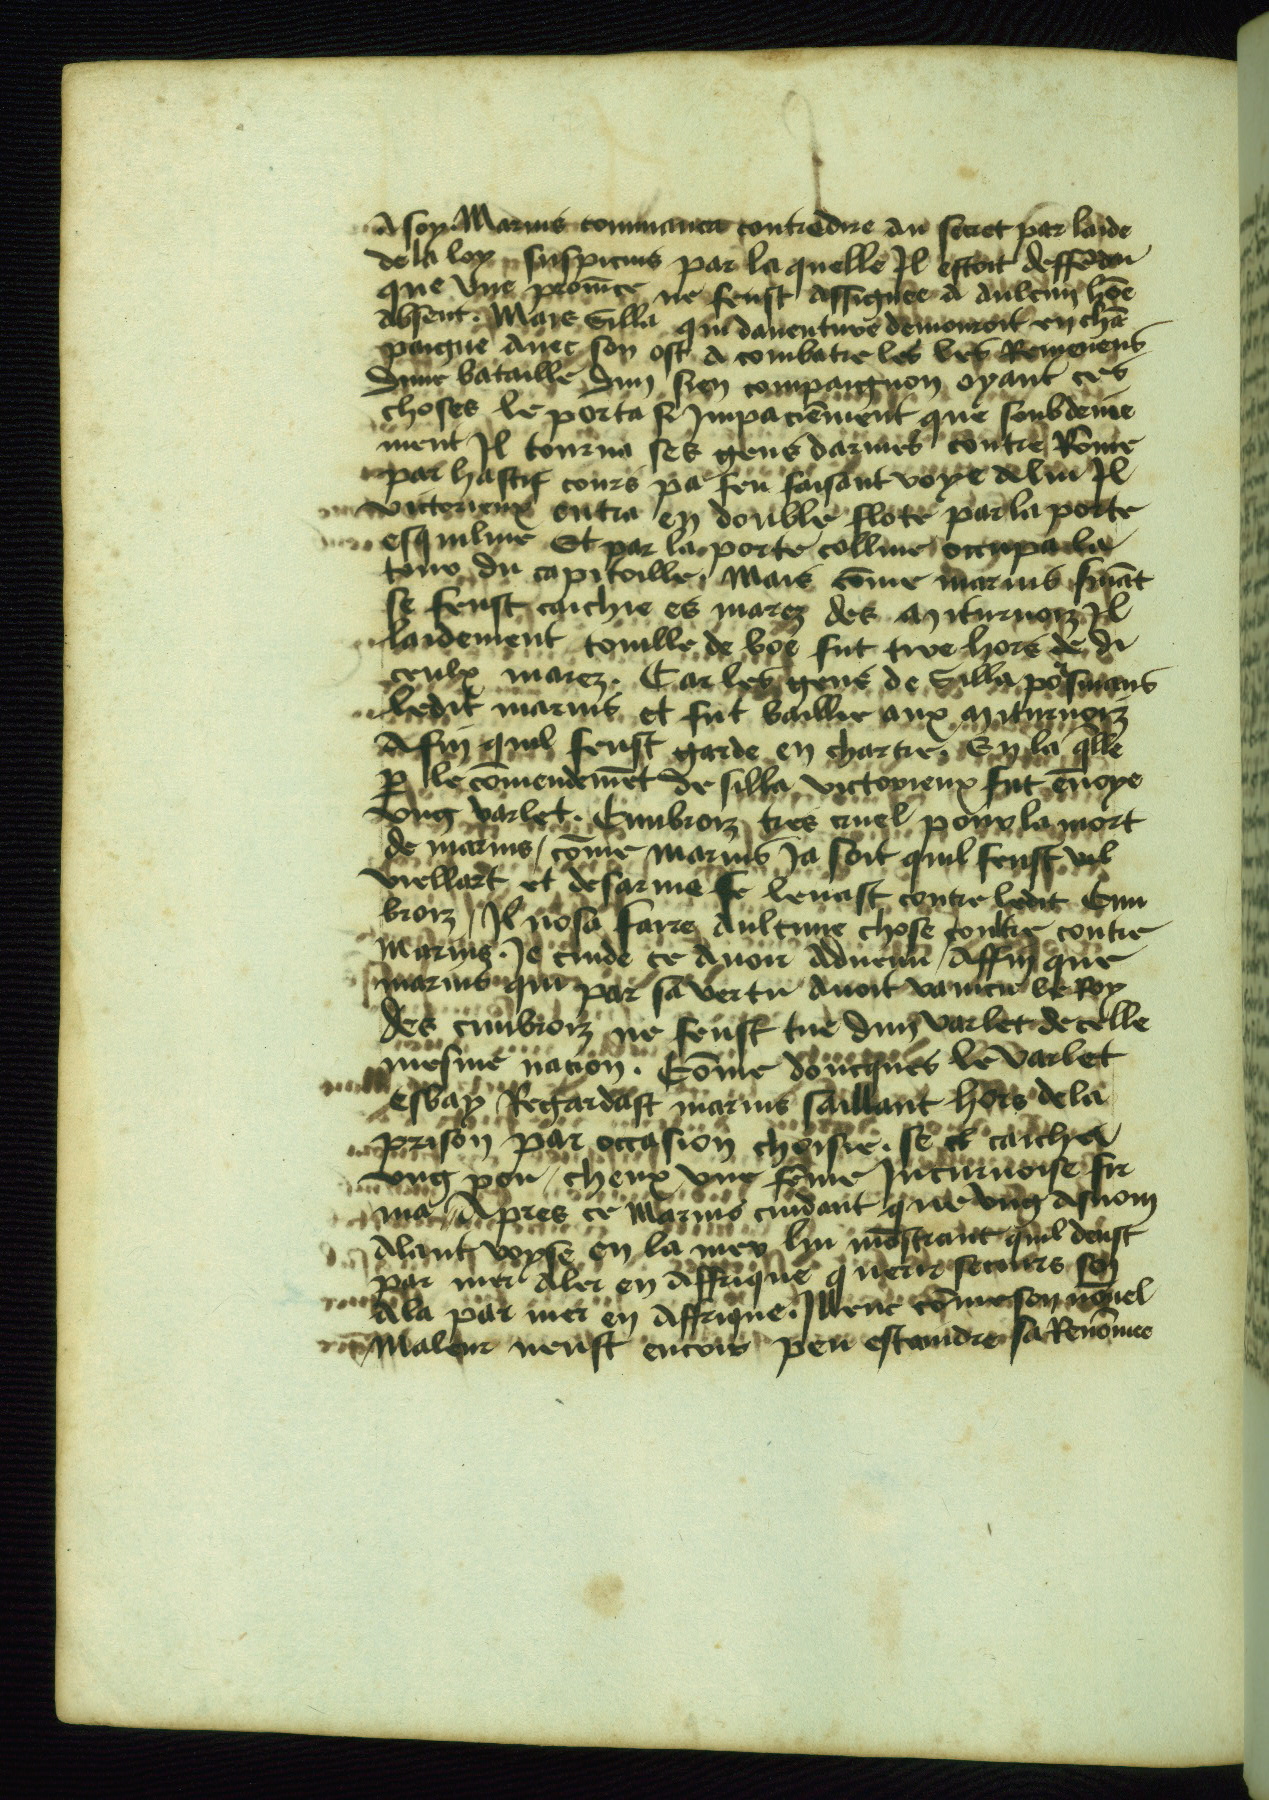 A soy. Marius commanca contredire au secret par laide
de la loy suspicius par la quelle Il estoit deffēdu
que vne prouīce ne feust assignee a aulcun hōe
absent. Mais Silla qui dauenture demouroit en chā
paigne auec son ost a combatre les les Remenens
dune bataille dun sien compaignon oyant ces
choses le porta si Impaciēment que soubdeine
ment Il tourna ses gens darmes contre Rōme
par hastif cours pa feu faisant voye de lui Il
victorieux entra en double flote par la porte
esquiline Et par la porte colline occupa la
tour du capitoille. Mais cōme marius fuiāt
se feust caichie es marez des miturnoiz Il
laidement touille de boe fut tire hors de di
ceulx marez. Car les gens de Silla
ledit marius et fut baillie aux miturnoiz
Afin quil feust garde en chartre. En la qlle
p le cōmendemēt de silla victorieux fut ēuoye
vng varlet. Cimbroiz tres cruel pour la mort
de marius / cōme marius Ja soit quil feust vil
viellart et desarme se leuast contre ledit Cim
broiz / Il nosa faire aulcune chose contre contre
Marius. Je cuide ce auoir aduenu / Affin que
marius qui par sa vertu auoit vaincu le Roy
des cimbroiz ne feust tue dun varlet de celle
mesme nacion. Cōme doncques le varlet
esbay Regardast marius saillant hors de la
prison par occasion choisie. se caicha
vng peu / cheux vne fēme Incurnoise fir
ma / Apres ce Marius cuidant que vng asnom
alant voyse en la mer lui mōstrant quil deust
par mer aler en Affrique querir secours sen
ala par mer en Affrique. Illenc cōme son nouel
Maleur neust encois peu estaindre sa Renōmee